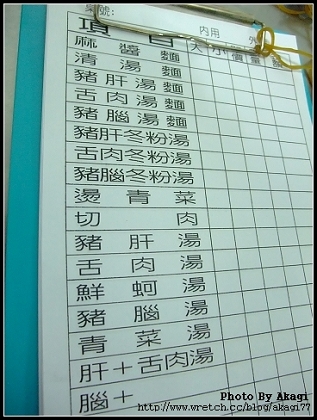 桌號: 內用
項 目 大 小 價 量
麻醬麵
清湯麵
豬肝湯麵
舌肉湯麵
豬腦湯麵
豬肝冬粉湯
舌肉冬粉湯
豬腦冬粉湯
燙青菜
切 肉
豬肝湯
舌肉湯
鮮蚵湯
豬腦湯
青菜湯
肝+舌肉湯
腦+
Photo By Akagi
http://www.wretch.cc/blog/akagi77